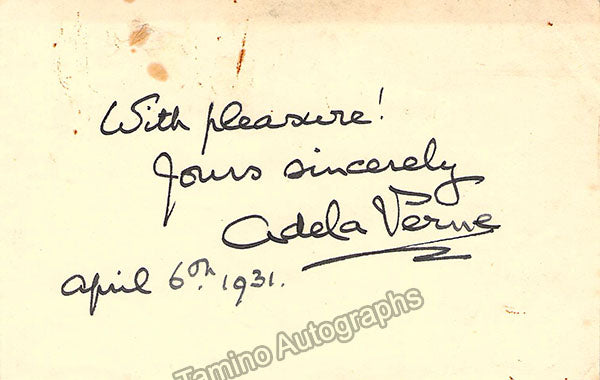 With pleasure!
Yours sincerely
Adela Verne
April 6th. 1931.
Tamino Autographs